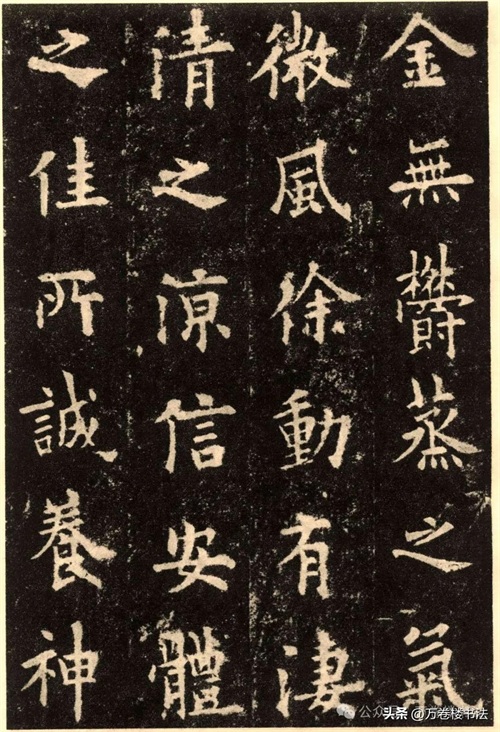 金無欝蒸之氣
微風徐動有淒
清之涼信安體
之佳所誠養神
公众号
头条 @万卷楼书法